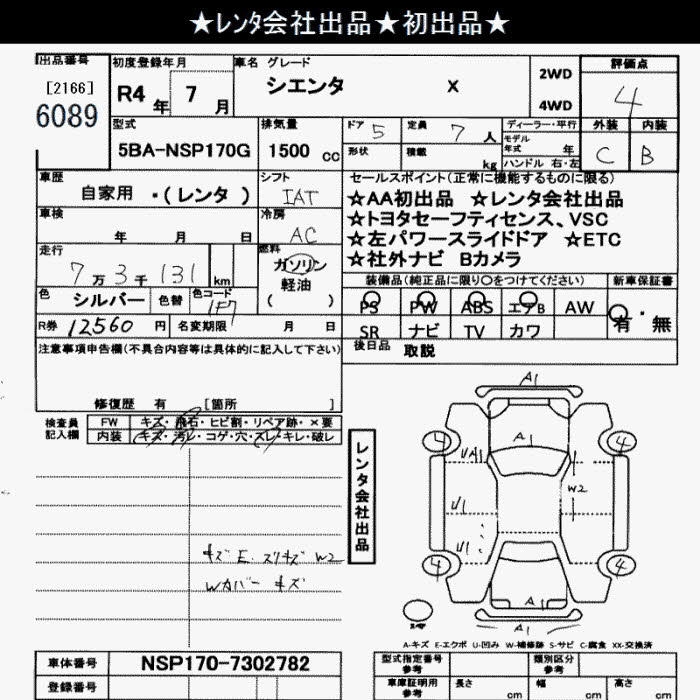 ★レンタ会社出品★初出品★
出品番号 初度登録年月 車名 グレード 評価点
[2166] R4年 7月 シエンタ X 2WD 4
6089 4WD
型式 排気量 ドア 5 定員 7人 ディーラー・平行 外装 内装
5BA-NSP170G 1500 cc 形状 積載 kg モデル年式 年 C B
ハンドル 右・左
車歴 シフト セールスポイント(正常に機能するものに限る)
自家用 ・(レンタ) IAT ☆AA初出品 ☆レンタ会社出品
車検 冷房 ☆トヨタセーフティセンス、VSC
年 月 日 AC ☆左パワースライドドア ☆ETC
走行 燃料 ☆社外ナビ Bカメラ
7万3千131 km ガソリン 装備品(純正品に限り○をつけてください) 新車保証書
色 シルバー 色替 色コード 1F7 軽油 PS PW ABS エアB AW 有・無
( ) SR ナビ TV カワ
R券 12560 円 名変期限 月 日 後日品 取説
注意事項申告欄(不具合内容等は具体的に記入して下さい)
修復歴 有 [箇所 ]
検査員記入欄 FW キズ・飛石・ヒビ割・リペア跡・×要
内装 キズ・汚レ・コゲ・穴・ズレ・キレ・破レ
レンタ会社出品
A1
4 A1 4
UA1
W2
U1
U1
4 4
A1
A1
キズ E スリキズ W2
Wカバー キズ
A-キズ E-エクボ U-凹み W-補修跡 S-サビ C-腐食 XX-交換済
車体番号 NSP170-7302782 型式指定番号 参考 類別区分 参考
登録番号 車庫証明用 参考 長さ cm 幅 cm 高さ cm